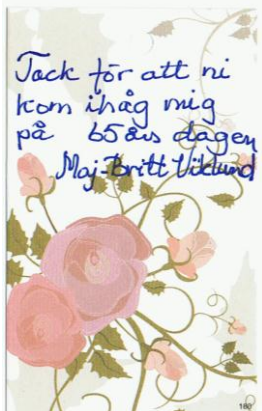 Tack för att ni
kom ihåg mig
på 65 års dagen
Maj-Britt Viklund
160